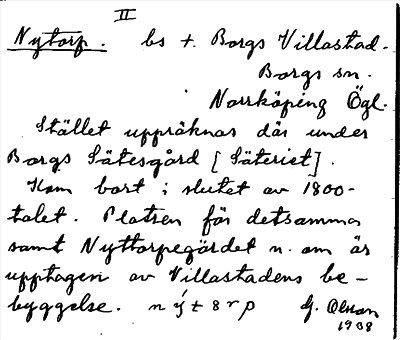 II
Nytorp. bs t. Borgs Villastad.
Borgs sn.
Norrköping Ögl.
Stället uppräknas där under
Borgs Sätesgård [Säteriet].
Kom bort i slutet av 1800-
talet. Platsen för detsamma
samt Nyttorpegärdet n. om är
upptagen av Villastadens be-
byggelse. G. Olson
1938